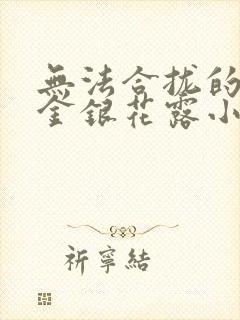 無法合拢的
金銀花露小
祈寧結